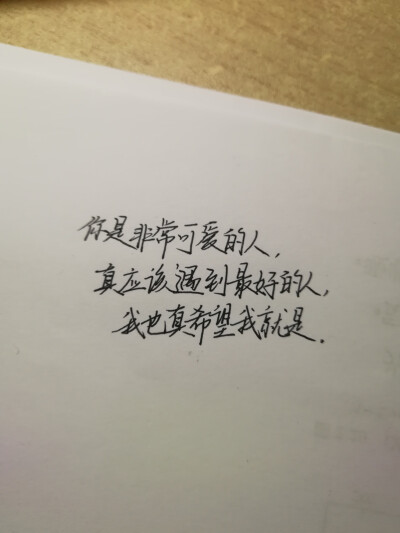 你是非常可爱的人,
真应该遇到最好的人,
我也真希望我就是.